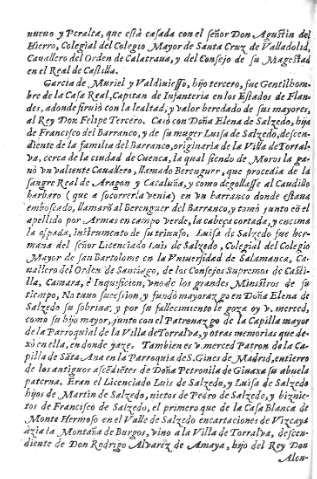 nueuo y Peralta, que està casada con el señor Don Agustin del
Hierro, Colegial del Colegio Mayor de Santa Cruz de Valladolid,
Cauallero del Orden de Calatraua, y del Consejo de su Magestad
en el Real de Castilla.
Garcia de Muriel y Valdiuiesso, hijo tercero, fue Gentilhom-
bre de la Casa Real, Capitan de Infanteria en los Estados de Flan-
des, adonde siruiò con la lealtad, y valor heredado de sus mayores,
al Rey Don Felipe Tercero. Casò con Doña Elena de Salzedo, hija
de Francisco del Barranco, y de su muger Luisa de Salzedo, descen-
diente de la familia del Barranco, originaria de la Villa de Torral-
va, cerca de la ciudad de Cuenca, la qual siendo de Moros la ga-
nò vn valiente Cauallero, llamado Berenguer, que procedia de la
sangre Real de Aragon y Cataluña, y como degollasse al Caudillo
barbaro (que a socorrerla venia) en vn barranco donde estaua
emboscado, llamarõ al Berenguer del Barranco, y tomò junto cõ el
apellido por Armas en campo verde, la cabeça cortada, y encima
la espada, instrumento de su triunfo. Luisa de Salzedo fue her-
mana del señor Licenciado Luis de Salzedo, Colegial del Colegio
Mayor de san Bartolome en la Vniuersidad de Salamanca, Ca-
uallero del Orden de Santiago, de los Consejos Supremos de Casti-
lla, Camara, è Inquisicion, vno de los grandes Ministros de su
tiempo, No tuuo sucesion, y fundò mayorazgo en Doña Elena de
Salzedo su sobrina; y por su fallecimiento le goza oy v. merced,
como su hijo mayor, junto con el Patronazgo de la Capilla mayor
de la Parroquial de la Villa de Torralva, y otras memorias que de-
xò en ella, en donde yaze. Tambien es v. merced Patron de la Ca-
pilla de Sãta Ana en la Parroquia de S. Gines de Madrid, entierro
de los antiguos ascẽdiẽtes de Doña Petronila de Ginaxa su abuela
paterna. Eran el Licenciado Luis de Salzedo, y Luisa de Salzedo
hijos de Martin de Salzedo, nietos de Pedro de Salzedo, y biznie-
tos de Francisco de Salzedo, el primero que de la Casa Blanca de
Monte Hermoso en el Valle de Salzedo encartaciones de Vizcaya
àzia la Montaña de Burgos, vino a la Villa de Torralva, descen-
diente de Don Rodrigo Alvarez de Amaya, hijo del Rey Don
Alon-